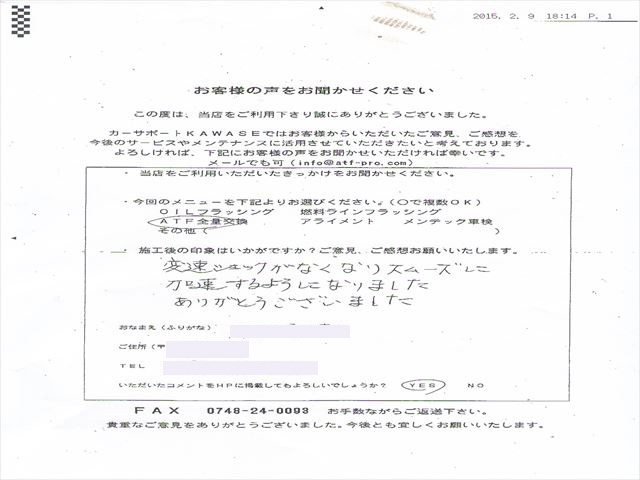 2015. 2. 9 18:14 P. 1
お客様の声をお聞かせください
この度は、当店をご利用下さり誠にありがとうございました。
カーサポートKAWASEではお客様からいただいたご意見、ご感想を
今後のサービスやメンテナンスに活用させていただきたいと考えております。
よろしければ、下記にお客様の声をお聞かせいただければ幸いです。
メールでも可(info@atf-pro.com)
・ 当店をご利用いただいたきっかけをお聞かせください。
・ 今回のメニューを下記よりお選びください。(○で複数OK)
OILフラッシング 燃料ラインフラッシング
ATF全量交換 アライメント メンテック車検
その他( )
・ 施工後の印象はいかがですか?ご意見、ご感想お願いいたします。
変速ショックがなくなりスムーズに
加速するようになりました
ありがとうございました
おなまえ(ふりがな)
ご住所(〒
TEL
いただいたコメントをHPに掲載してもよろしいでしょうか? YES NO
FAX 0748-24-0093 お手数ながらご返送下さい。
貴重なご意見をありがとうございました。今後とも宜しくお願いいたします。